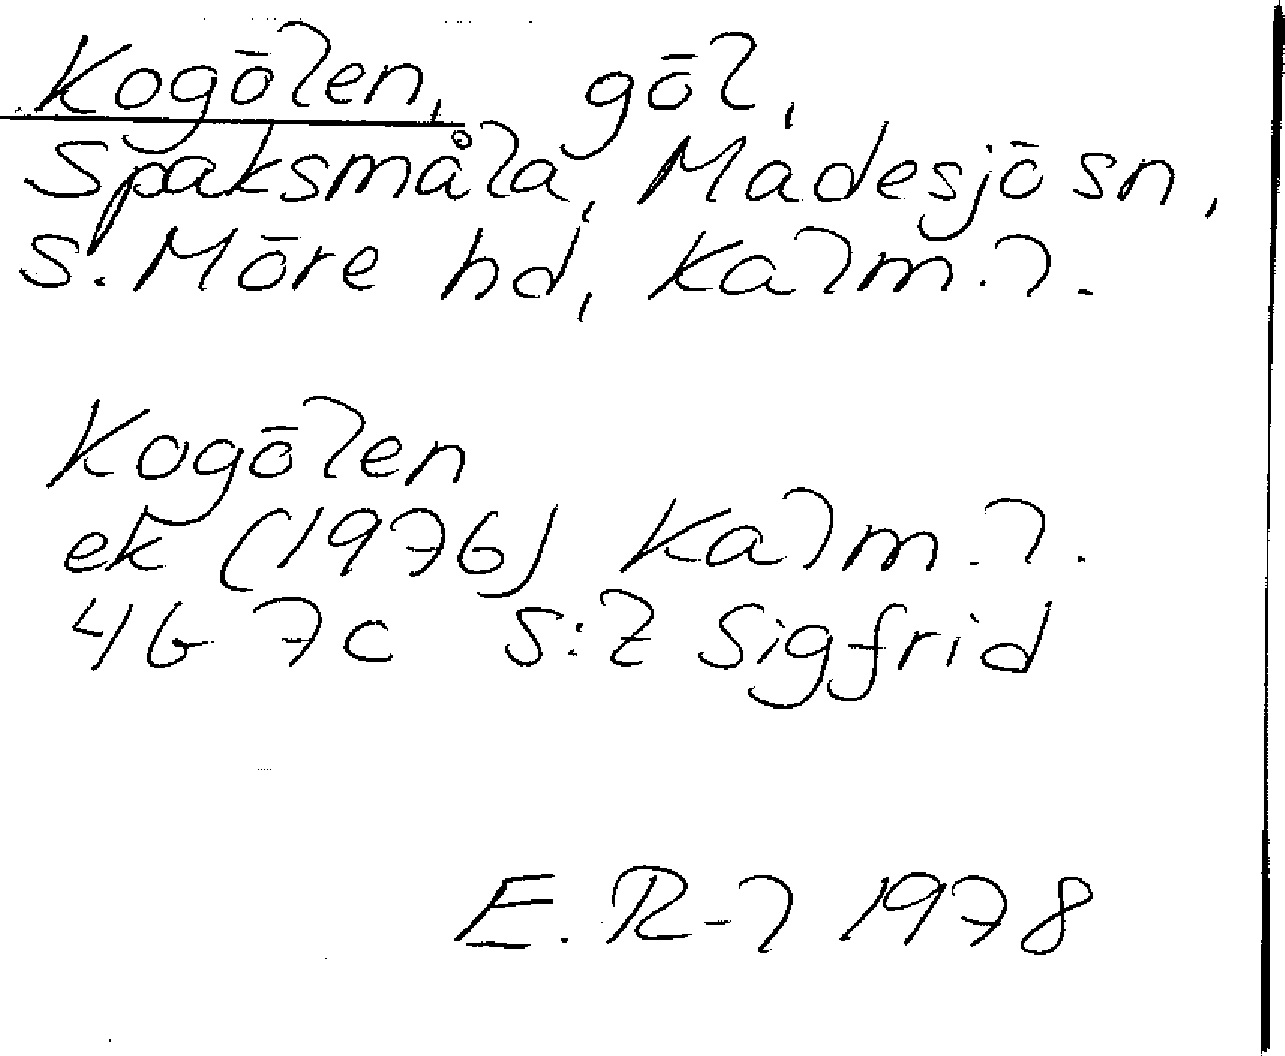 Kogölen, göl,
Spaksmåla, Madesjö sn,
S. Möre hd, Kalm. l.
Kogölen
ek (1976) Kalm. l.
4G 7c S:2 Sigfrid
E. R-l 1978